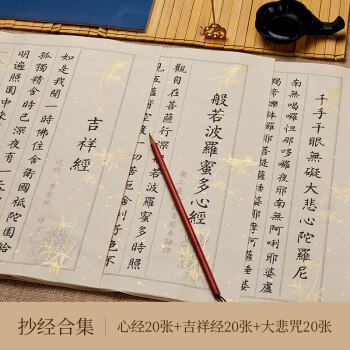 千手千眼無礙大悲心陀羅尼
南無喝囉怛那哆囉夜耶南無阿唎耶婆盧
羯帝爍缽囉耶菩提薩埵婆耶摩訶薩埵婆
般若波羅蜜多心經
觀自在菩薩行深般若波羅蜜多時照
空度一切苦厄舍利子色不
吉祥經
如是我聞一時佛住舍衛國祇陀園給
孤獨精舍時已深夜有一天
明遍照園中來
抄经合集
心经20张+吉祥经20张+大悲咒20张